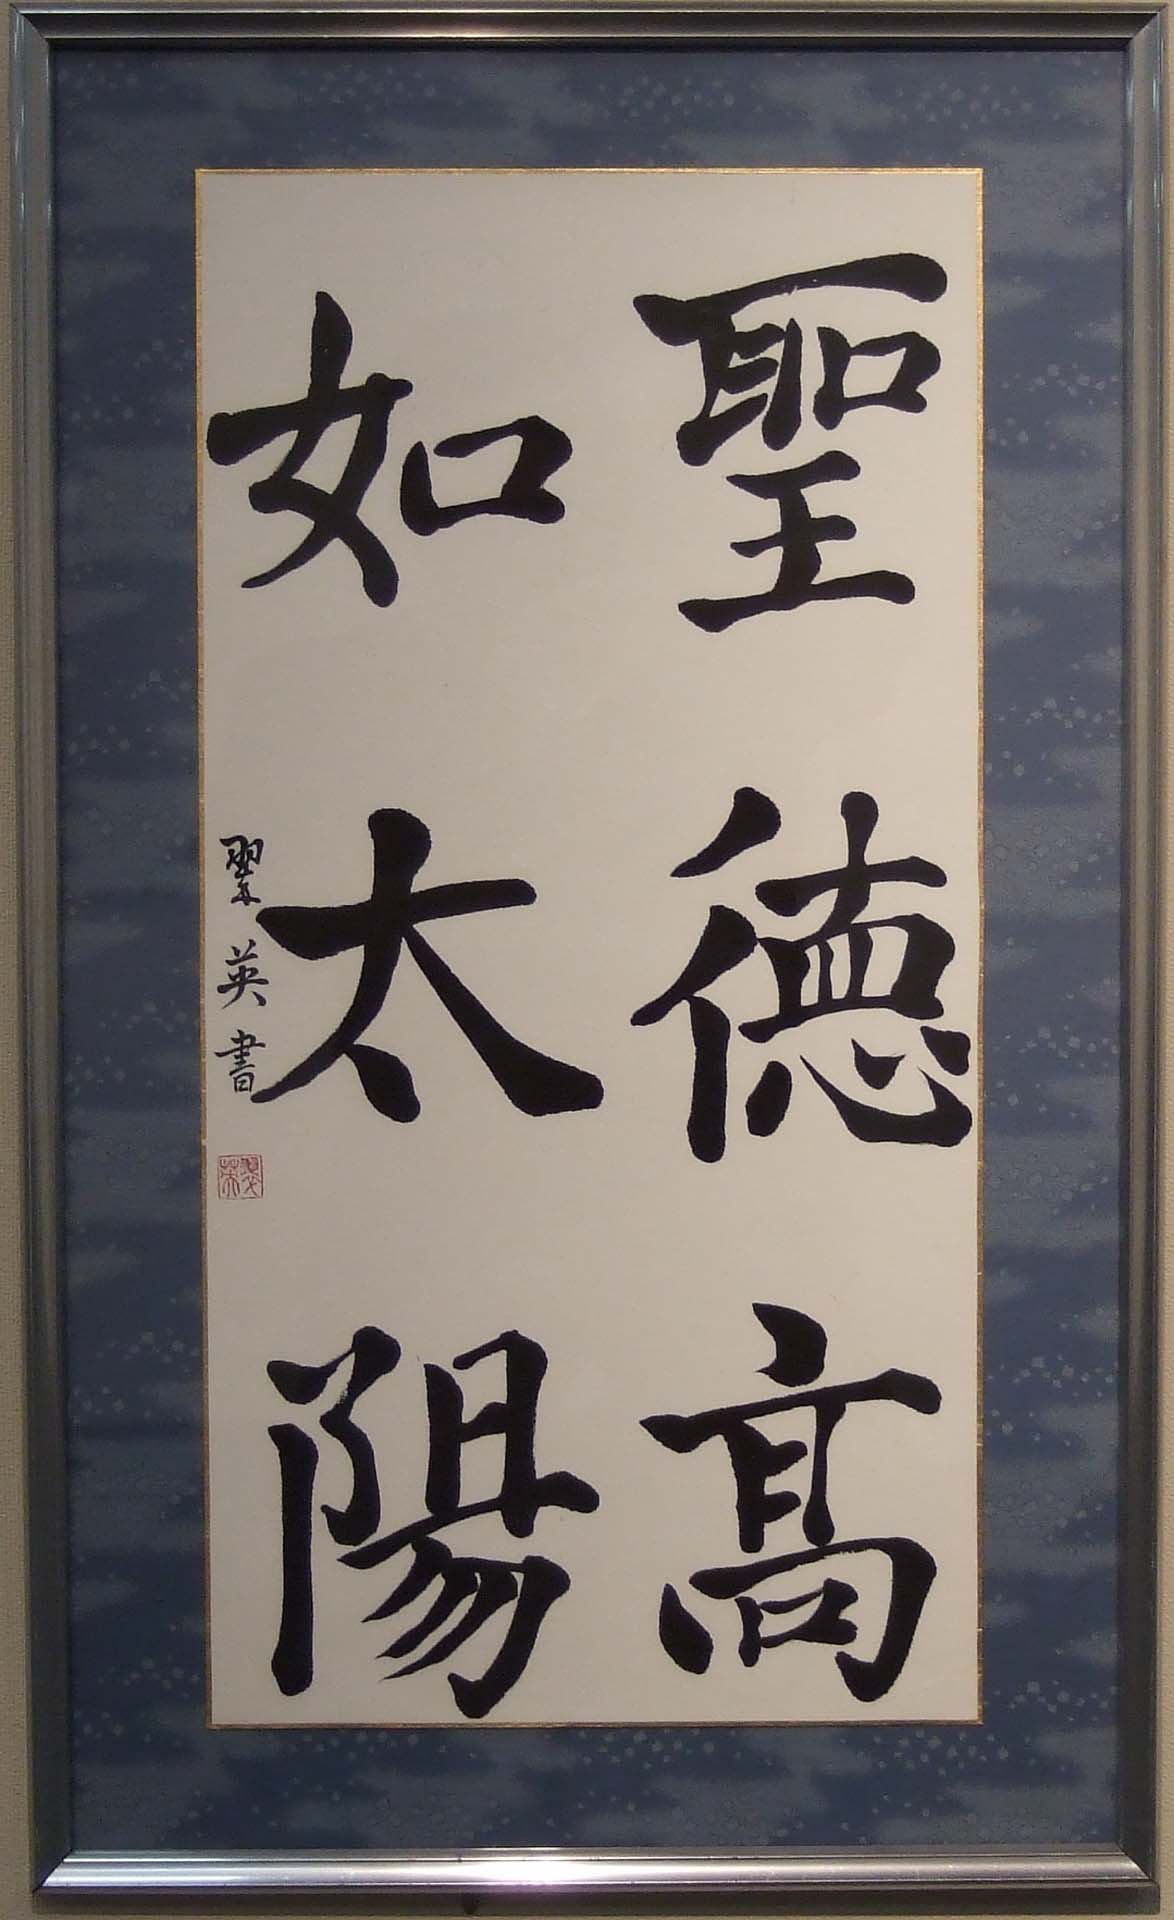 聖徳高
如太陽
翠英書